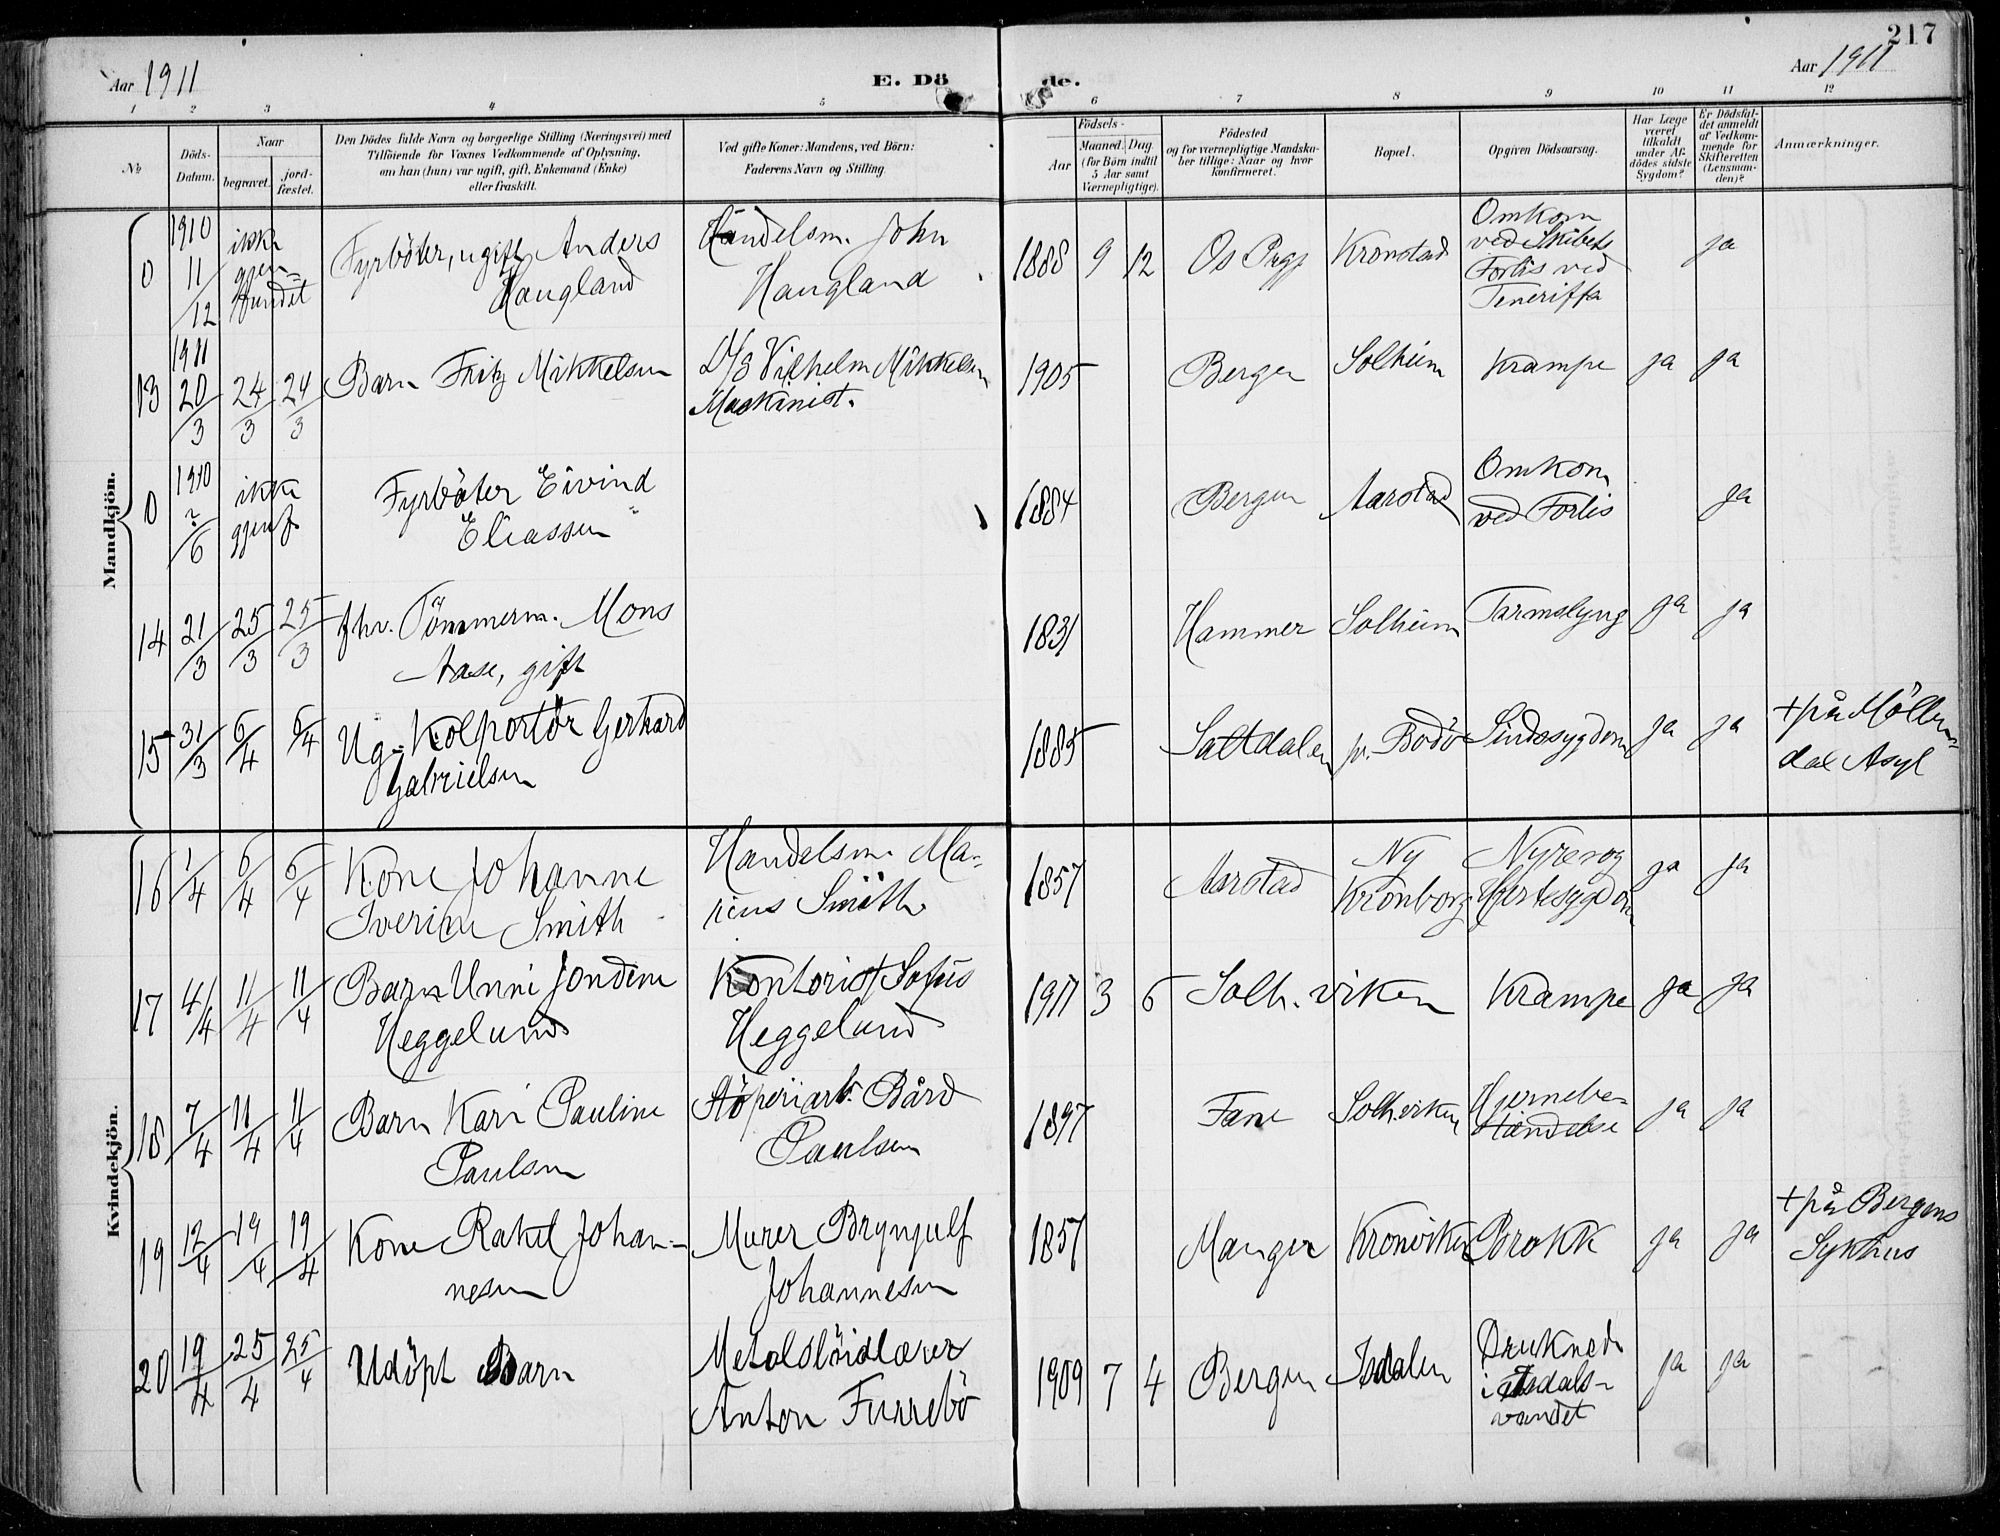 217
Aar 1911
E. Dö de.
Aar 1911
1 2 3 4 5 6 7 8 9 10 11 12
No
Döds-Datum.
Naar
begravet.
jord-fæstet.
Den Dödes fulde Navn og borgerlige Stilling (Næringsvei) med
Tilföiende for Voxnes Vedkommende af Oplysning,
om han (hun) var ugift, gift, Enkemand (Enke)
eller fraskilt.
Ved gifte Koner: Mandens, ved Börn:
Faderens Navn og Stilling
Födsels-
Aar
Maaned. Dag
(for Börn indtil
5 Aar samt
Værnepligtige).
Födested
og for værnepligtige Mandska-
ber tillige: Naar og hvor
konfirmeret.
Bopæl.
Opgiven Dödsaarsag.
Har Læge
været
tilkaldt
under Af-
dödes sidste
Sygdom?
Er Dödsfal-
det anmeldt
af Vedkom-
mende for
Skifteretten
(Lensman-
den)?
Anmærkninger.
Mandkjön.
0 1910 11/12 ikke gjen-fundet Fyrböter, ugift Anders Haugland Handelsm. John Haugland 1888 9 12 Os Kronstad Omkom ved Skibets Forlis ved Teneriffa ja
13 1911 20/3 24/3 24/3 Barn Fritz Mikkelsen Vilhelm Mikkelsen Maskinist. 1905 Bergen Solheim Krampe ja ja
0 1910 ?/6 ikke gjenf Fyrböter Eivind Eliassen 1884 Bergen Aarstad Omkom ved Forlis ja
14 21/3 25/3 25/3 fhv. Tömmerm. Mons Aase, gift 1831 Hammer Solheim Tarmslyng ja ja
15 31/3 6/4 6/4 Ug. Kolportör Gerhard Gabrielsen 1885 Saltdalen pr. Bodö Sindssygdom ja ja + på Möllen-dal Asyl
Kvindekjön.
16 1/4 6/4 6/4 Kone Johanne Iverine Smith Handelsm. Ma-rius Smith 1857 Aarstad Ny Kronborg Nyre og Hjertesygdom ja ja
17 4/4 11/4 11/4 Barn Unni Jondine Heggelund Kontorist Sofus Heggelund 1911 3 6 Solh. viken Krampe ja ja
18 7/4 11/4 11/4 Barn Kari Pauline Paulsen Stöperiarb. Bård Paulsen 1897 Fane Solh.viken Hjernebe-tændelse ja ja
19 12/4 19/4 19/4 Kone Rakel Johan-nesen Murer Brynjulf Johannesen 1857 Manger Kronviken Brokk ja ja + på Bergens Sykhus
20 19/4 25/4 25/4 Udöpt Barn Metalslöidlærer Anton Furrebö 1909 7 4 Bergen Isdalen Druknede i Isdals-vandet ja ja